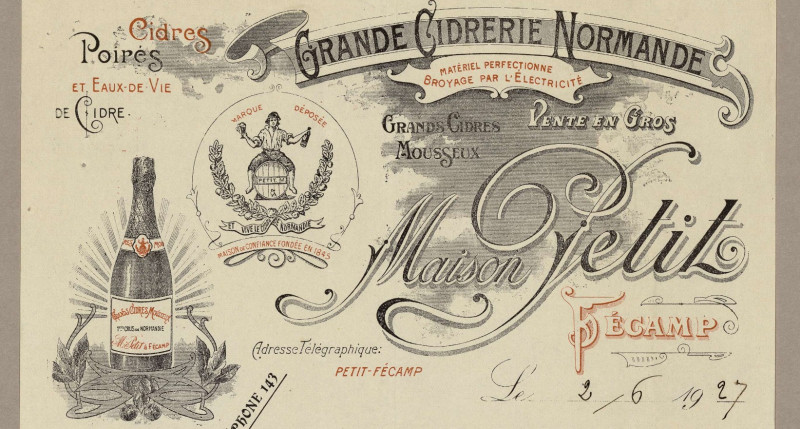 Cidres
Poirés
ET EAUX-DE-VIE
DE CIDRE.
GRANDE CIDRERIE NORMANDE
MATÉRIEL PERFECTIONNE
BROYAGE PAR L'ÉLECTRICITÉ
GRANDS CIDRES
MOUSSEUX
VENTE EN GROS
MARQUE DÉPOSÉE
PETIT
ET VIVE LE CIDRE NORMANDIE
MAISON DE CONFIANCE FONDÉE EN 1845
Maison Petit
FÉCAMP
GRANDS CIDRES MOUSSEUX
NORMANDIE
M. Petit à FÉCAMP
Adresse Télégraphique:
PETIT-FÉCAMP
PHONE 143
Le 2/6 1927